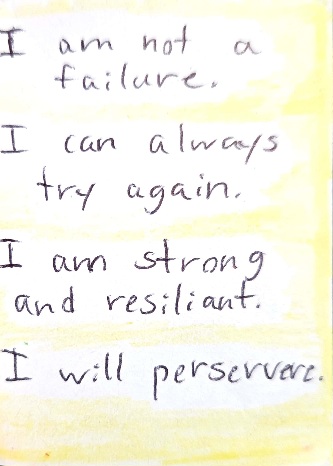 I am not a
failure.
I can always
try again.
I am strong
and resiliant.
I will perservere.